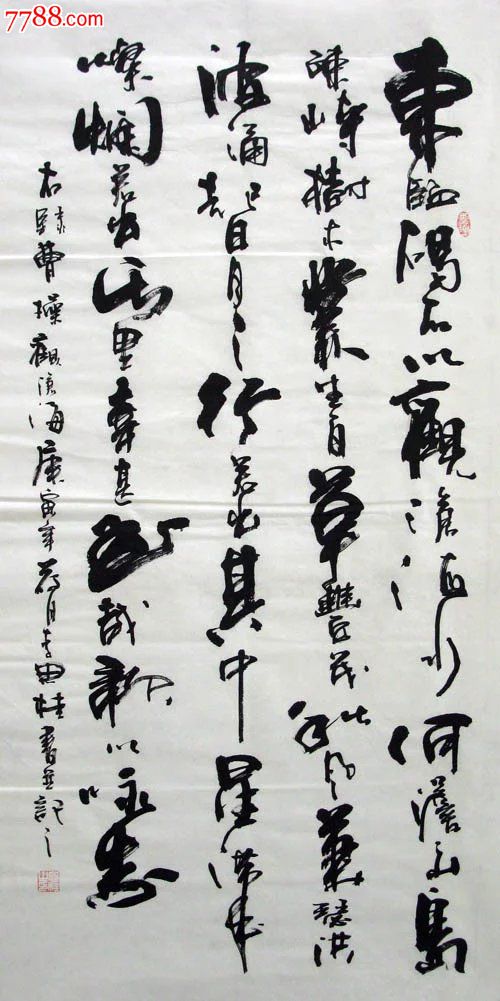 7788.com
東臨碣石以觀滄海水何澹山島
竦峙樹木叢生百草豐茂秋風蕭瑟洪
波涌起日月之行若出其中星漢
燦爛若出其里幸甚至哉歌以詠志
右錄曹操觀滄海庚寅年月李典桂書並記之